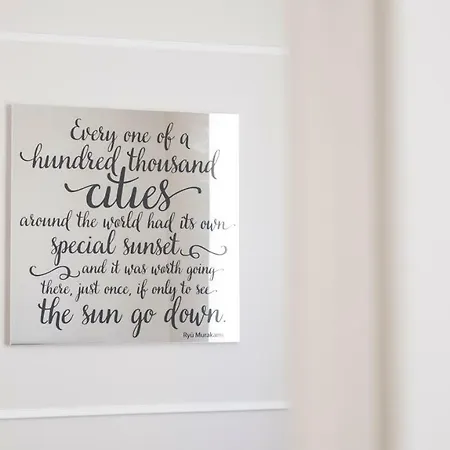 Every one of a
hundred thousand
cities
around the world had its own
special sunset
and it was worth going
there, just once, if only to see
the sun go down.
Ryū Murakami